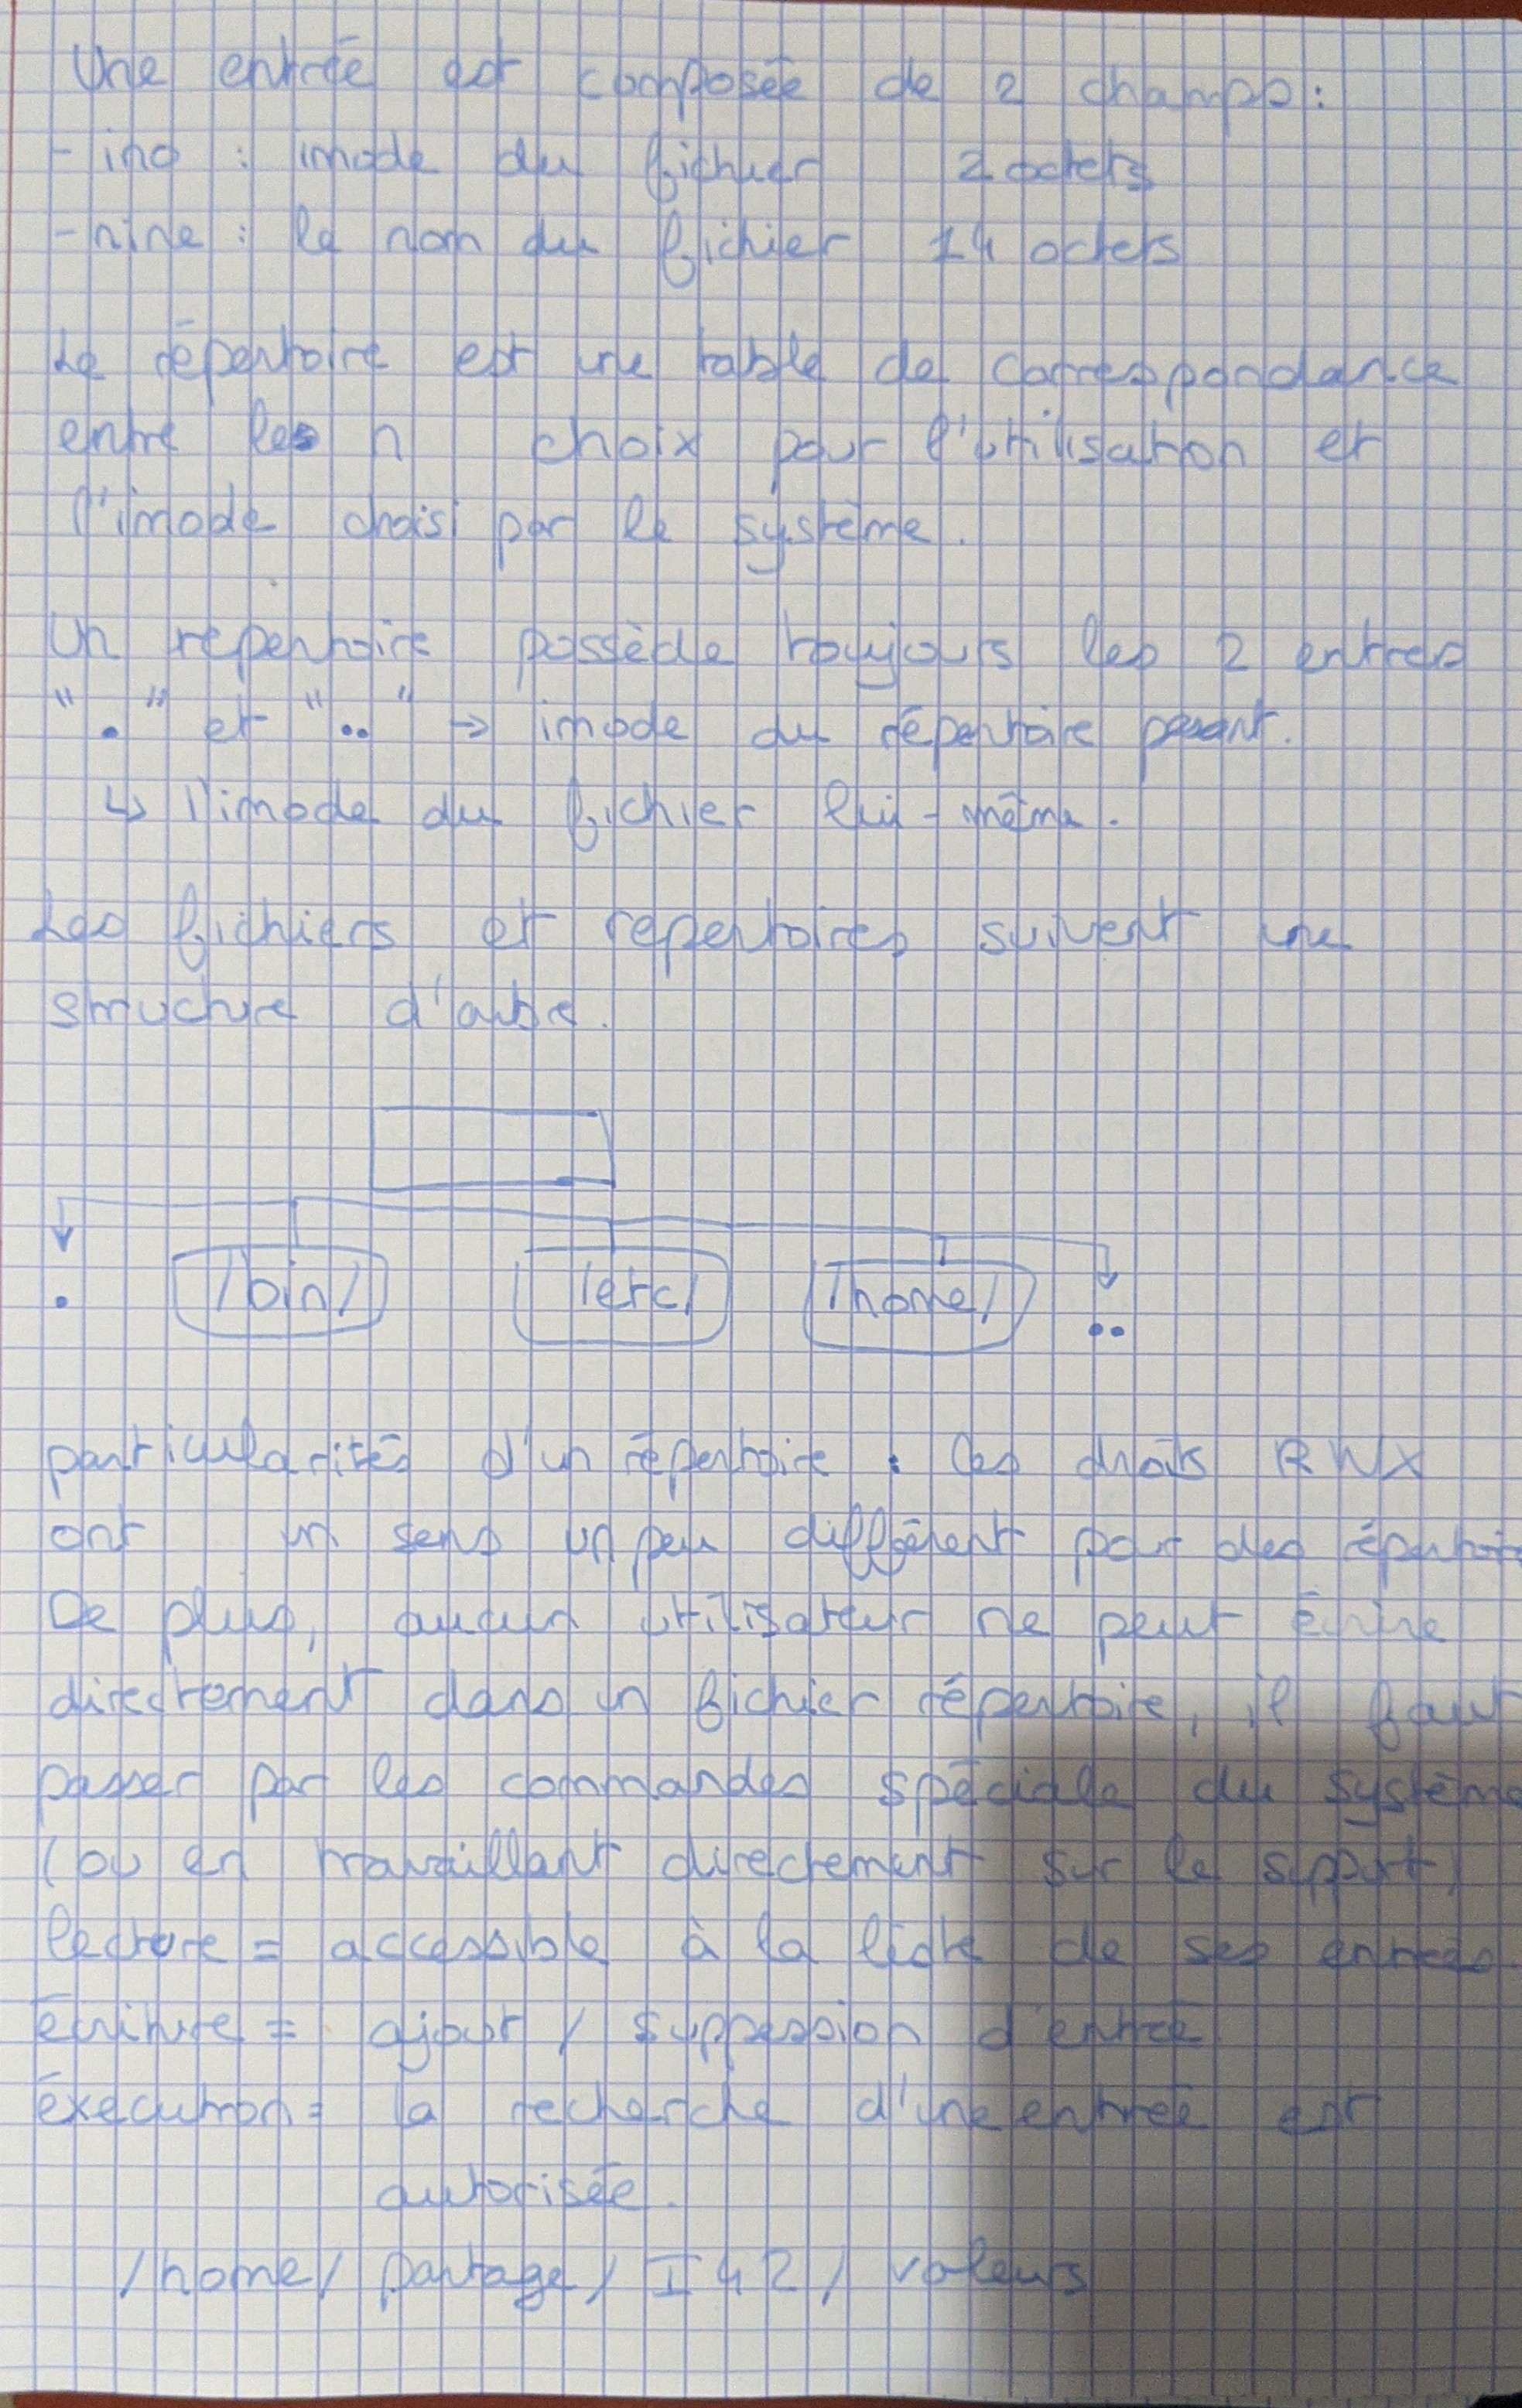 Une entrée est composée de 2 champs :
- ino : imode du fichier 2 octets
- nine : le nom du fichier 14 octets
Le répertoire est une table de correspondance
entre les n choix pour l'utilisation et
l'imode choisi par le système.
Un repertoire possède toujours les 2 entres
" . " et " .. " → imode du répertoire parent.
↳ l'imode du fichier lui-même.
Les fichiers et repertoires suivent une
structure d'arbre.
. /bin/ /etc/ /home/ ..
particularités d'un répertoire : les droits RWX
ont un sens un peu différent pour des répertoire
De plus, aucun utilisateur ne peut écrire
directement dans un fichier répertoire, il faut
passer par les commandes spéciale du système
(ou en travaillant directement sur le support)
lecture = accessible à la liste de ses entrées.
écriture = ajout / suppession d'entrée.
éxecution = la recherche d'une entrée est
autorisée.
/home/ partage/ I42/ valeurs